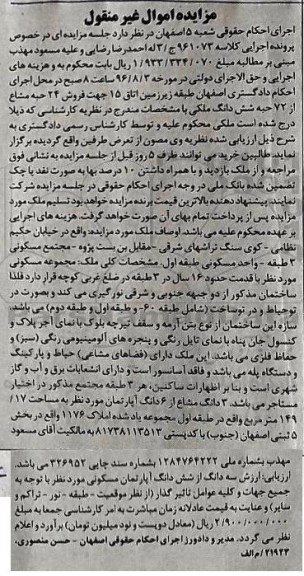 مزایده اموال غیر منقول
اجرای احکام حقوقی شعبه ۵ اصفهان در نظر دارد جلسه مزایده ای در خصوص
پرونده اجرایی کلاسه ۹۶۱۰۷۳ ج/۳ له احمدرضا رضایی و علیه مسعود مهذب
مبنی بر مطالبه مبلغ ۱/۹۳۳/۳۳۴/۰۷۰ ریال بابت محکوم به و هزینه های
اجرایی و حق الاجرای دولتی در مورخه ۹۶/۸/۳ ساعت ۸ صبح در محل اجرای
احکام دادگستری اصفهان طبقه زیرزمین اتاق ۱۵ جهت فروش ۲۴ حبه مشاع
از ۷۲ حبه شش دانگ ملکی با مشخصات مندرج در نظریه کارشناسی که ذیلا
درج شده است ملکی محکوم علیه و توسط کارشناس رسمی دادگستری به
شرح ذیل ارزیابی شده نظریه وی مصون از تعرض طرفین واقع گردیده برگزار
نماید. طالبین خرید می توانند ظرف ۵ روز قبل از جلسه مزایده به نشانی فوق
مراجعه و از ملک بازدید و با همراه داشتن ۱۰ درصد بها به صورت نقد یا چک
تضمین شده بانک ملی در وجه اجرای احکام حقوقی در جلسه مزایده شرکت
نمایند. پیشنهاددهنده بالاترین قیمت برنده مزایده خواهد بود تسلیم ملک مورد
مزایده پس از پرداخت تمام بهای آن صورت خواهد گرفت. هزینه های اجرایی
بر عهده محکوم علیه می باشد. اوصاف ملک مورد مزایده: واقع در خیابان حکیم
نظامی - کوی سنگ تراشهای شرقی - مقابل بن بست پژوه - مجتمع مسکونی
۳ طبقه - واحد مسکونی طبقه اول. مشخصات کلی ملک: مجموعه مسکونی
مورد نظر با قدمت حدود ۱۶ سال در ۳ طبقه در ضلع غربی کوچه قرار دارد فلذا
ساختمان مذکور از دو جبهه جنوبی و شرقی نورگیری می کند و بصورت در
توحیاط و در توساخت (شامل طبقه ۶۰- و طبقه اول و طبقه دوم) می باشد.
سازه این ساختمان از نوع بتن آرمه و سقف تیرچه بلوک با نمای آجر پلاک و
کنسول جان پناه با نمای تایل رنگی و پنجره های آلومینیومی رنگی (سبز) و
حفاظ فلزی می باشد. این ملک دارای (فضاهای مشاعی) حیاط و پارکینگ
و دستگاه پله می باشد و فاقد آسانسور است و دارای انشعابات برق و آب و گاز
شهری است و بنا بر اظهارات ساکنین، هر ۳ طبقه مجتمع مذکور در اختیار
مستاجر می باشد. ۳ دانگ مشاع از ۶ دانگ آپارتمان مورد نظر به مساحت ۱۷/
۱۴۹ متر مربع واقع در طبقه اول مجموعه یادشده املاک ۱۱۷۶ واقع در بخش
۵ ثبتی اصفهان (جنوب) با کدپستی ۸۱۷۳۸۱۱۳۵۱۳ به مالکیت آقای مسعود
مهذب بشماره ملی ۱۲۸۴۷۶۴۲۲۲ بشماره سند چاپی ۳۲۶۹۵۲ می باشد.
ارزیابی: ارزش سه دانگ از شش دانگ آپارتمان مسکونی مورد نظر با توجه به
جمیع جهات و کلیه عوامل تاثیر گذار (از نظر موقعیت - طبقه - نور - تراکم و
سایر) و عنایت به قیمت عادلانه زمان مباشرت به امر کارشناسی جمعا به مبلغ
۲/۹۰۰/۰۰۰/۰۰۰ ریال (معادل دویست و نود میلیون تومان) برآورد و اعلام
نظر می گردد. مدیر و دادورز اجرای احکام حقوقی اصفهان - حسن منصوری.
۲۱۹۴۳/م الف